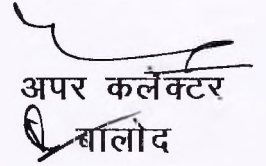 अपर कलेक्टर
बालोद